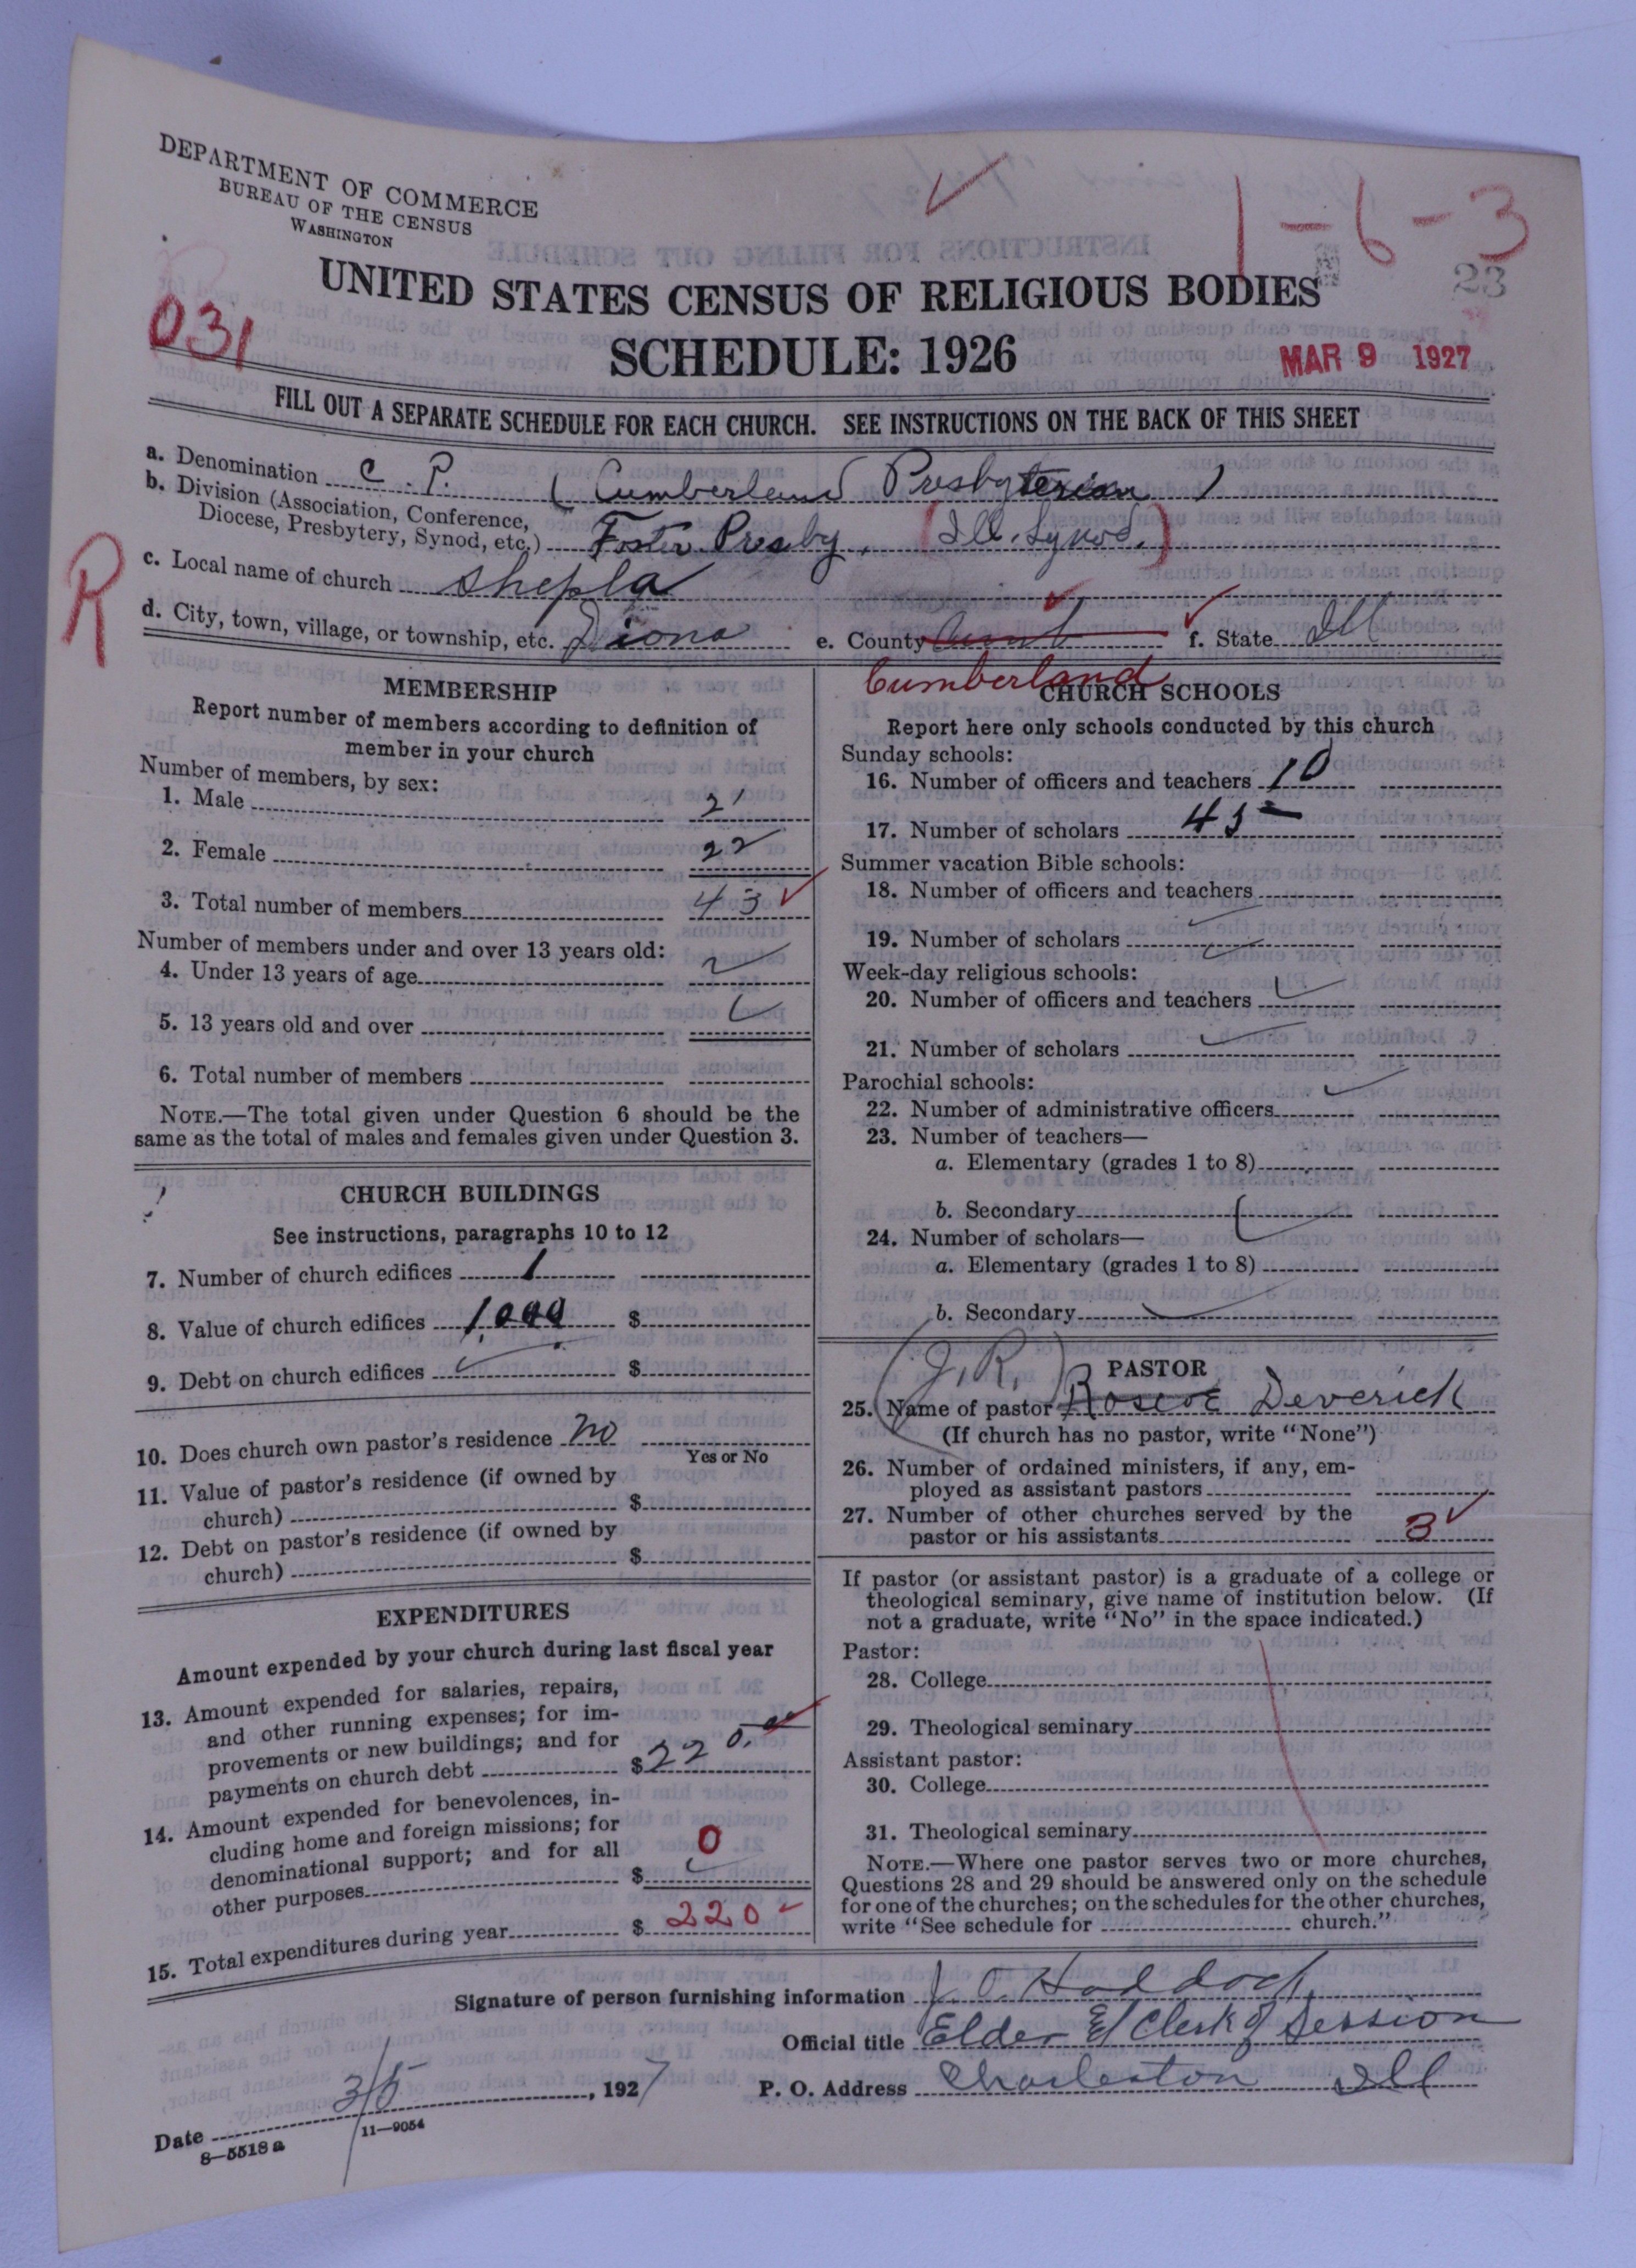 DEPARTMENT OF COMMERCE
BUREAU OF THE CENSUS
WASHINGTON
1-6-3
23
UNITED STATES CENSUS OF RELIGIOUS BODIES
031
SCHEDULE: 1926
MAR 9 1927
FILL OUT A SEPARATE SCHEDULE FOR EACH CHURCH. SEE INSTRUCTIONS ON THE BACK OF THIS SHEET
a. Denomination C. P. (Cumberland Presbyterian)
b. Division (Association, Conference,
Diocese, Presbytery, Synod, etc.) Foster Presby. (Ill. Synod.)
R
c. Local name of church Shepla
d. City, town, village, or township, etc. Diona e. County f. State Ill
Cumberland
MEMBERSHIP
Report number of members according to definition of
member in your church
Number of members, by sex:
1. Male 21
2. Female 22
3. Total number of members 43
Number of members under and over 13 years old:
4. Under 13 years of age
5. 13 years old and over
6. Total number of members
NOTE.—The total given under Question 6 should be the
same as the total of males and females given under Question 3.
CHURCH BUILDINGS
See instructions, paragraphs 10 to 12
7. Number of church edifices 1
8. Value of church edifices 1,000 $
9. Debt on church edifices $
10. Does church own pastor's residence no
Yes or No
11. Value of pastor's residence (if owned by
church) $
12. Debt on pastor's residence (if owned by
church) $
EXPENDITURES
Amount expended by your church during last fiscal year
13. Amount expended for salaries, repairs,
and other running expenses; for im-
provements or new buildings; and for
payments on church debt $220.00
14. Amount expended for benevolences, in-
cluding home and foreign missions; for
denominational support; and for all
other purposes $ 0
15. Total expenditures during year $ 220
CHURCH SCHOOLS
Report here only schools conducted by this church
Sunday schools:
16. Number of officers and teachers 10
17. Number of scholars 45
Summer vacation Bible schools:
18. Number of officers and teachers
19. Number of scholars
Week-day religious schools:
20. Number of officers and teachers
21. Number of scholars
Parochial schools:
22. Number of administrative officers
23. Number of teachers—
a. Elementary (grades 1 to 8)
b. Secondary
24. Number of scholars—
a. Elementary (grades 1 to 8)
b. Secondary
(J. R.) PASTOR
25. Name of pastor Roscoe Deverick
(If church has no pastor, write "None")
26. Number of ordained ministers, if any, em-
ployed as assistant pastors
27. Number of other churches served by the
pastor or his assistants 3
If pastor (or assistant pastor) is a graduate of a college or
theological seminary, give name of institution below. (If
not a graduate, write "No" in the space indicated.)
Pastor:
28. College
29. Theological seminary
Assistant pastor:
30. College
31. Theological seminary
NOTE.—Where one pastor serves two or more churches,
Questions 28 and 29 should be answered only on the schedule
for one of the churches; on the schedules for the other churches,
write "See schedule for church."
Signature of person furnishing information J. O. Haddock
Official title Elder & Clerk of Session
Date 3/5, 1927 P. O. Address Charleston Ill
8—5518 a 11—9054